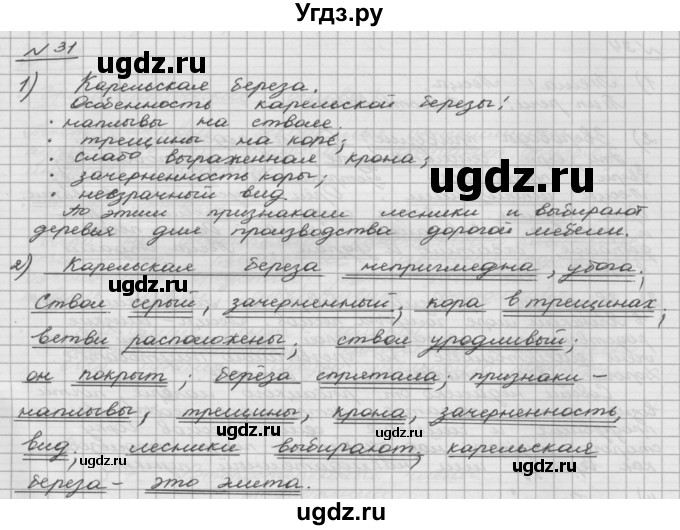 Угдз.ру
№ 31
1) Карельская береза.
Особенность карельской березы:
· наплывы на стволе;
· трещины на коре;
· слабо выраженная крона;
· зачерненность коры;
· невзрачный вид.
По этим признакам лесники и выбирают
деревья для производства дорогой мебели.
2) Карельская береза неприглядна, убога;
Ствол серый, зачерненный; кора в трещинах;
ветви расположены; ствол уродливый;
он покрыт; берёза спрятала; признаки –
наплывы, трещины, крона, зачерненность,
вид; лесники выбирают; карельская
береза – это элита.
ugdz.ru
ugdz.ru
ugdz.ru
ugdz.ru
ugdz.ru
ugdz.ru
ugdz.ru
ugdz.ru
ugdz.ru
ugdz.ru
ugdz.ru
©ugdz.ru